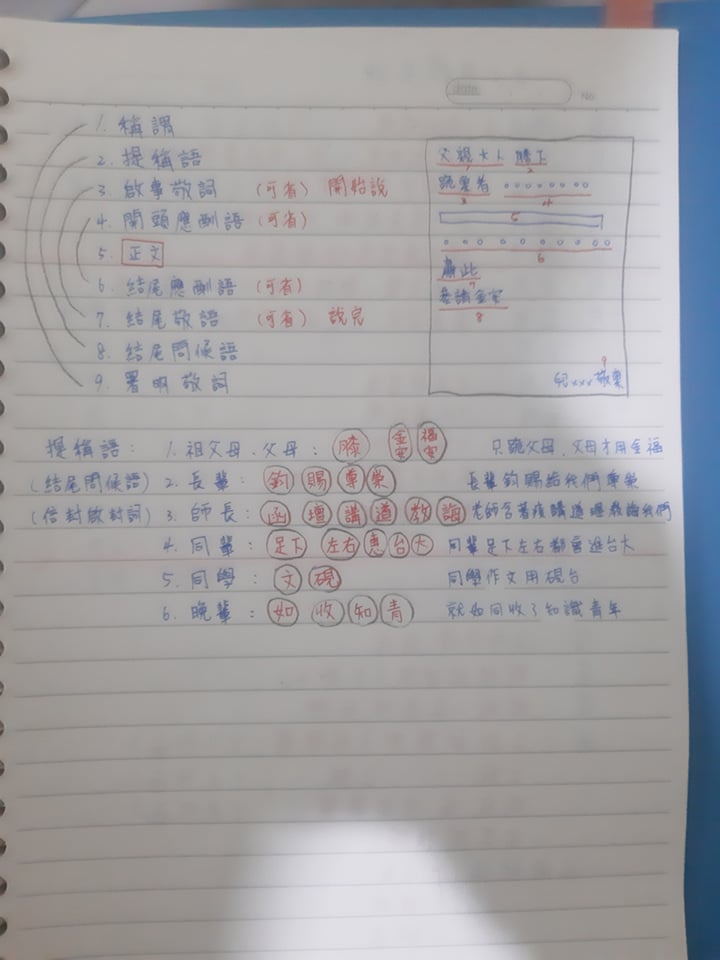 Date
No.
1. 稱謂
2. 提稱語
3. 啟事敬詞 (可省) 開始說
4. 開頭應酬語 (可省)
5. 正文
6. 結尾應酬語 (可省)
7. 結尾敬語 (可省) 說完
8. 結尾問候語
9. 署名敬詞
父親大人 膝下
1 2
跪稟者
3 4
5
6
肅此
7
恭請金安
8
9
兒xxx敬稟
提稱語: 1. 祖父母、父母: 膝 金安 福安 只跪父母、父母才用金福
(結尾問候語) 2. 長輩: 鈞 賜 尊 崇 長輩鈞賜給我們尊崇
(信封啟封詞) 3. 師長: 函 壇 講 道 教 誨 老師含著痰講道理教誨我們
4. 同輩: 足下 左右 惠 台 大 同輩足下左右都會進台大
5. 同學: 文 硯 同學作文用硯台
6. 晚輩: 如 收 知 青 就如同收了知識青年